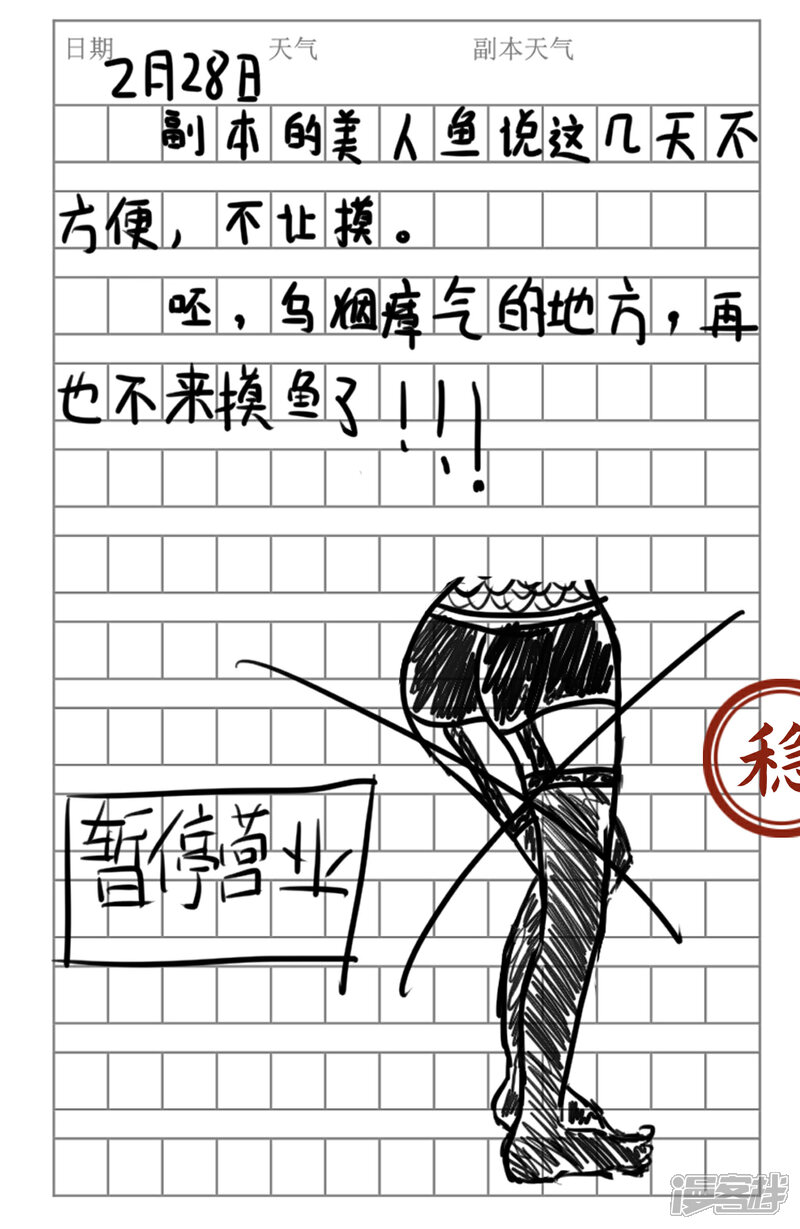 日期 天气 副本天气
2月28日
副本的美人鱼说这几天不
方便，不让摸。
呸，乌烟瘴气的地方，再
也不来摸鱼了！！！
稳
暂停营业
漫客栈